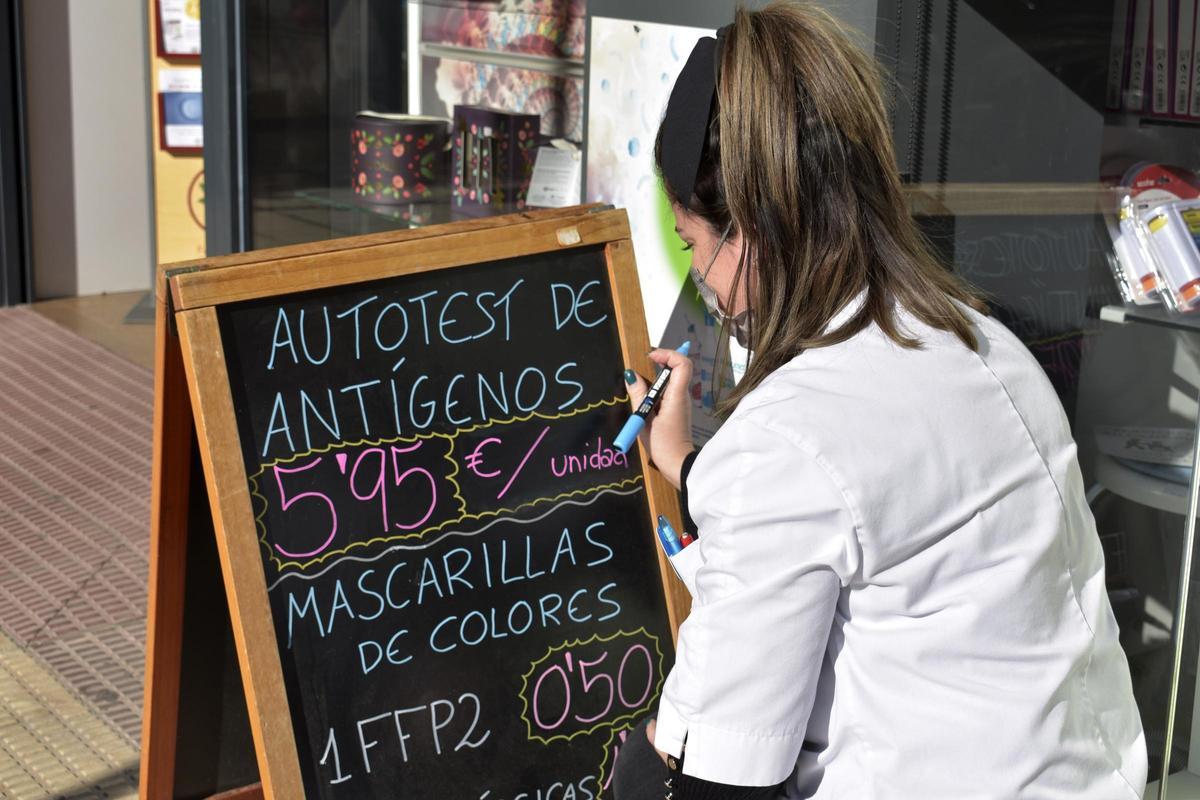 AUTOTEST DE
ANTÍGENOS
5'95 €/ unidad
MASCARILLAS
DE COLORES
1 FFP2 0'50